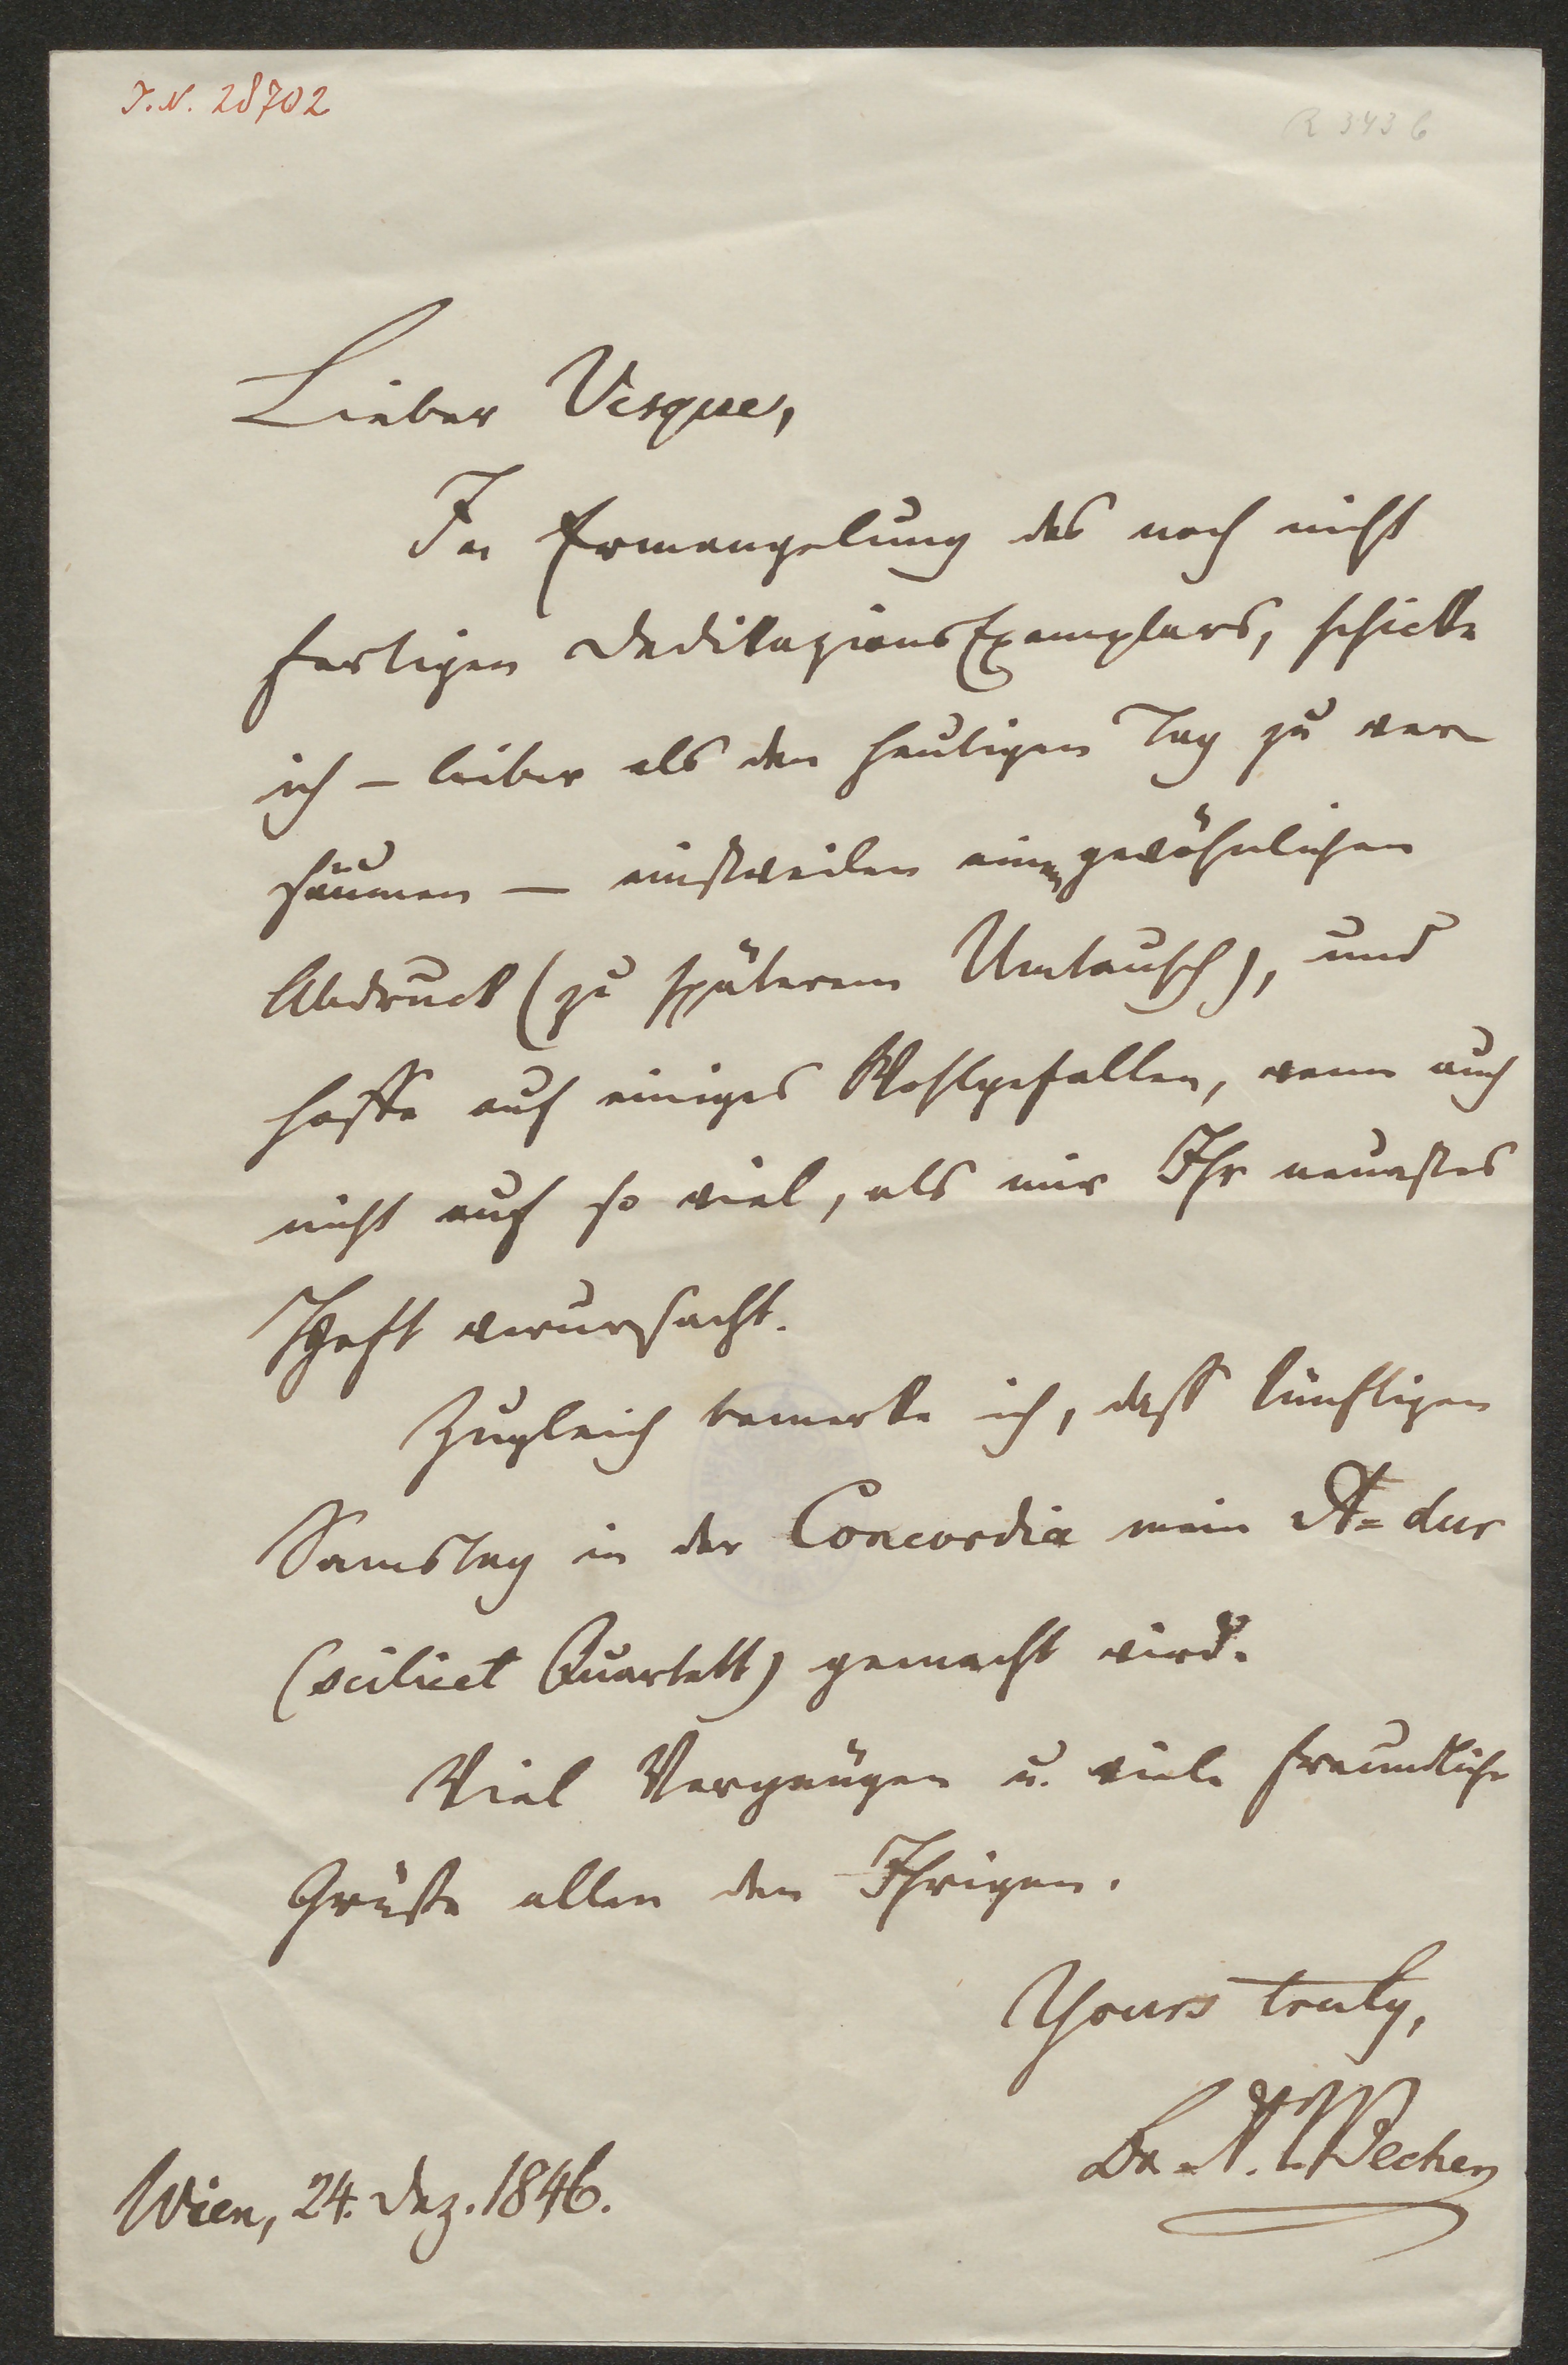 I.N. 28702
R 3436
Lieber Vesque,
In Ermangelung des noch nicht
fertigen DedikazionsExemplars, schicke
ich – lieber als den heutigen Tag zu ver-
säumen – einstweilen einen gewöhnlichen
Abdruck (zu späterem Umtausch), und
hoffe auf einiges Wohlgefallen, wenn auch
nicht auf so viel, als mir Ihr neuestes
Heft verursacht.
Zugleich bemerke ich, daß künftigen
Samstag in der Concordia mein A=dur
(scilicet Quartett) gemacht wird.
Viel Vergnügen u. viele freundliche
Grüße allen den Ihrigen.
Yours truly,
Dr. A. J. Becher
Wien, 24. Dez. 1846.